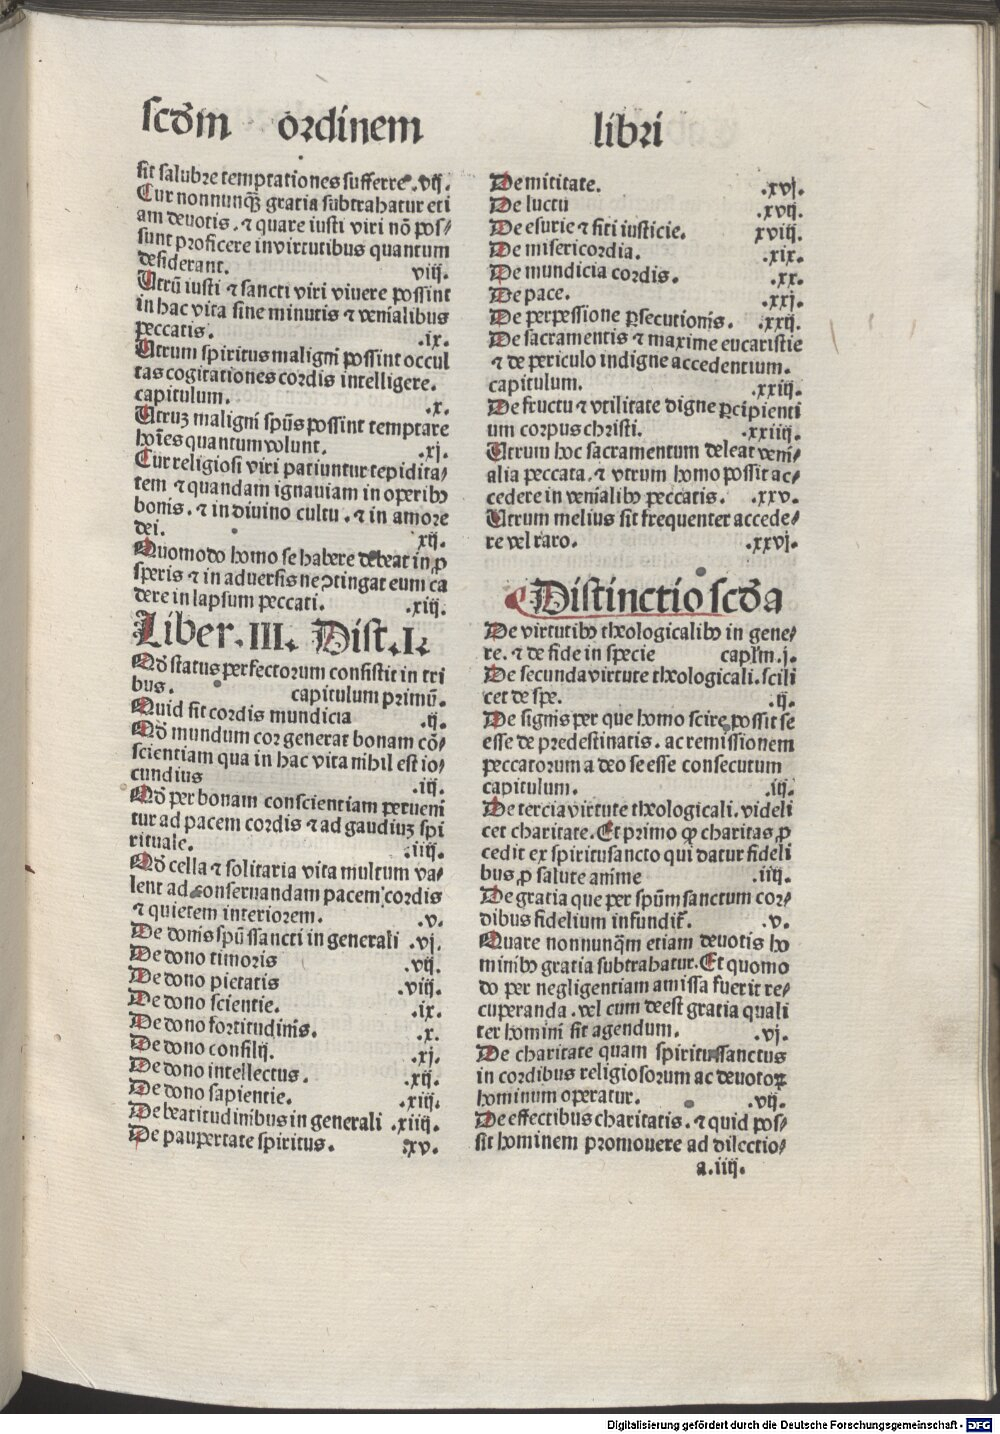 scd̄m ordinem libri
sit salubre temptationes sufferre .vij.
Cur nonnunq̄ȝ gratia subtrahatur eti
am deuotis. ⁊ quare iusti viri nō pos⸗
sunt proficere in virtutibus quantum
desiderant. viij.
Utrū iusti ⁊ sancti viri viuere possint
in hac vita sine minutis ⁊ venialibus
peccatis. .ix.
Utrum spiritus maligni possint occul
tas cogitationes cordis intelligere.
capitulum. .x.
Utruȝ maligni spūs possint temptare
hoīes quantum volunt. .xj.
Cur religiosi viri patiuntur tepidita⸗
tem ⁊ quandam ignauiam in operibꝰ
bonis. ⁊ in diuino cultu. ⁊ in amore
dei. xij.
Quomodo homo se habere debeat in ꝓ
speris ⁊ in aduersis ne ꝯtingat eum ca
dere in lapsum peccati. .xiij.
Liber .III. Dist. I.
Qd̄ status perfectorum consistit in tri
bus. capitulum primū.
Quid sit cordis mundicia .ij.
Qd̄ mundum cor generat bonam cō⸗
scientiam qua in hac vita nihil est io⸗
cundius .iij.
Qd̄ per bonam conscientiam perueni
tur ad pacem cordis ⁊ ad gaudiuȝ spi
rituale. .iiij.
Qd̄ cella ⁊ solitaria vita multum va⸗
lent ad conseruandam pacem cordis
⁊ quietem interiorem. .v.
De donis spūs sancti in generali .vj.
De dono timoris .vij.
De dono pietatis .viij.
De dono scientie. .ix.
De dono fortitudinis. .x.
De dono consilij. .xj.
De dono intellectus. .xij.
De dono sapientie. .xiij.
De beatitudinibus in generali .xiiij.
De paupertate spiritus. .xv.
De mititate. .xvj.
De luctu .xvij.
De esurie ⁊ siti iusticie. xviij.
De misericordia. .xix.
De mundicia cordis. .xx.
De pace. .xxj.
De perpessione ꝑsecutionis. .xxij.
De sacramentis ⁊ maxime eucaristie
⁊ de periculo indigne accedentium.
capitulum. .xxiij.
De fructu ⁊ vtilitate digne ꝑcipienti
um corpus christi. .xxiiij.
Utrum hoc sacramentum deleat veni⸗
alia peccata. ⁊ vtrum homo possit ac⸗
cedere in venialibꝰ peccatis. .xxv.
Utrum melius sit frequenter accede⸗
re vel raro. .xxvj.
Distinctio scd̄a
De virtutibꝰ theologicalibꝰ in gene⸗
re. ⁊ de fide in specie caplm̄.j.
De secunda virtute theologicali. scili
cet de spe. .ij.
De signis per que homo scire possit se
esse de predestinatis. ac remissionem
peccatorum a deo se esse consecutum
capitulum. .iij.
De tercia virtute theologicali. videli
cet charitate. Et primo ꝙ charitas ꝓ
cedit ex spiritusancto qui datur fideli
bus ꝓ salute anime .iiij.
De gratia que per spūm sanctum cor⸗
dibus fidelium infundit᷑. .v.
Quare nonnunq̄m etiam deuotis ho
minibꝰ gratia subtrahatur. Et quomo
do per negligentiam amissa fuerit re⸗
cuperanda. vel cum deest gratia quali
ter homini sit agendum. .vj.
De charitate quam spiritussanctus
in cordibus religiosorum ac deuotoꝝ
hominum operatur. .vij.
De effectibus charitatis. ⁊ quid pos⸗
sit hominem promouere ad dilectio⸗
a.iiij.
Digitalisierung gefördert durch die Deutsche Forschungsgemeinschaft - DFG